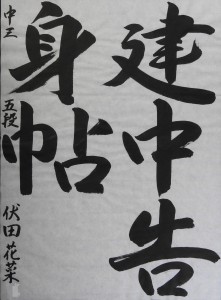 建中告
身帖
中三 五段 伏田花菜